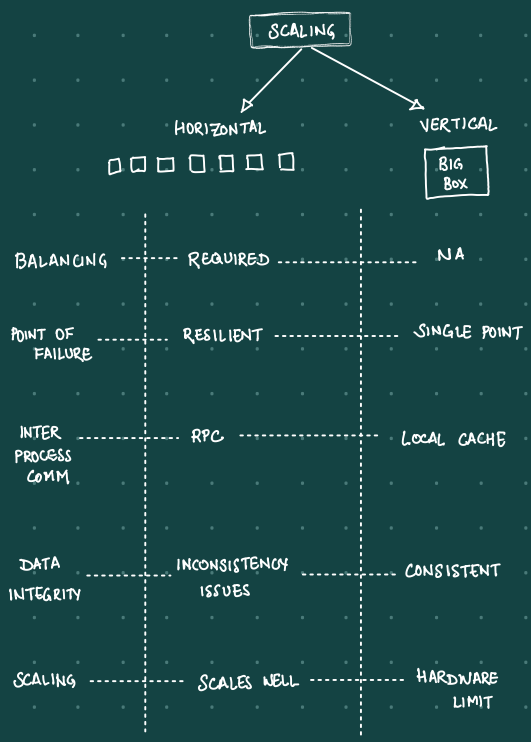 SCALING
HORIZONTAL
VERTICAL
BIG
BOX
BALANCING REQUIRED NA
POINT OF
FAILURE RESILIENT SINGLE POINT
INTER
PROCESS
COMM RPC LOCAL CACHE
DATA
INTEGRITY INCONSISTENCY
ISSUES CONSISTENT
SCALING SCALES WELL HARDWARE
LIMIT